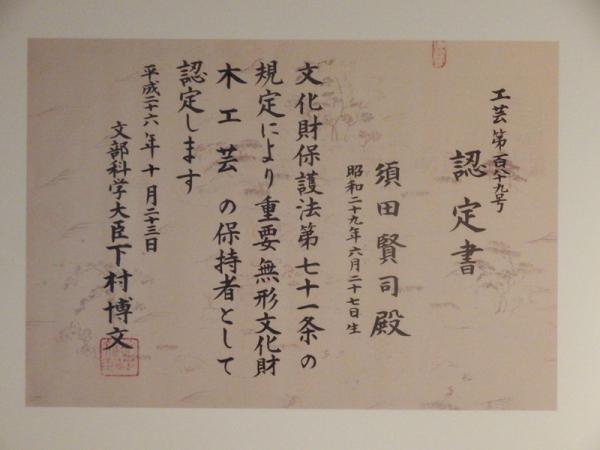 工芸第百八十九号
認定書
須田賢司殿
昭和二十九年六月二十七日生
文化財保護法第七十一条の
規定により重要無形文化財
木工芸の保持者として
認定します
平成二十六年十月二十三日
文部科学大臣下村博文